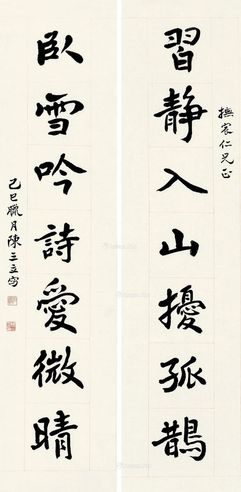 撫宸仁兄正
習靜入山擾孤鵲
臥雪吟詩愛微晴
己巳臘月陳三立書